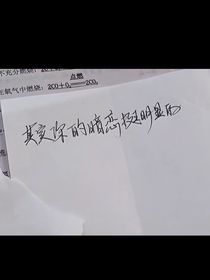 不充分燃烧：
点燃
在氧气中燃烧：2CO+O₂=2CO₂
其实你的暗恋挺明显的